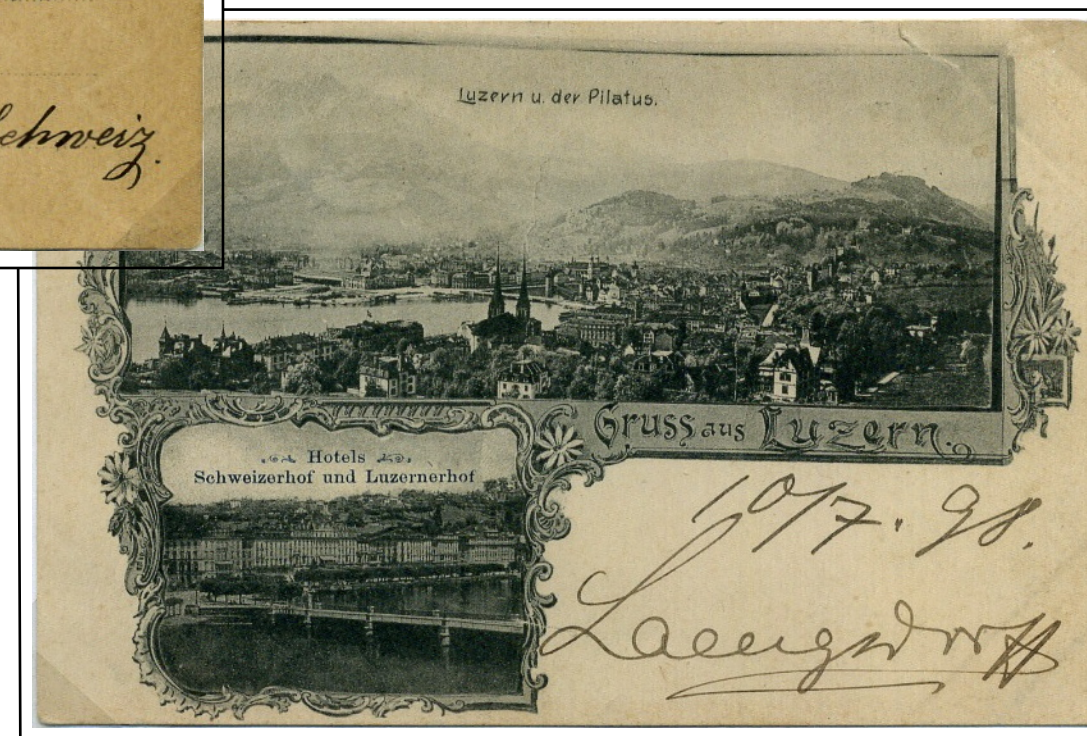 Schweiz.
Luzern u. der Pilatus.
Gruss aus Luzern.
Hotels
Schweizerhof und Luzernerhof
10/7. 98.